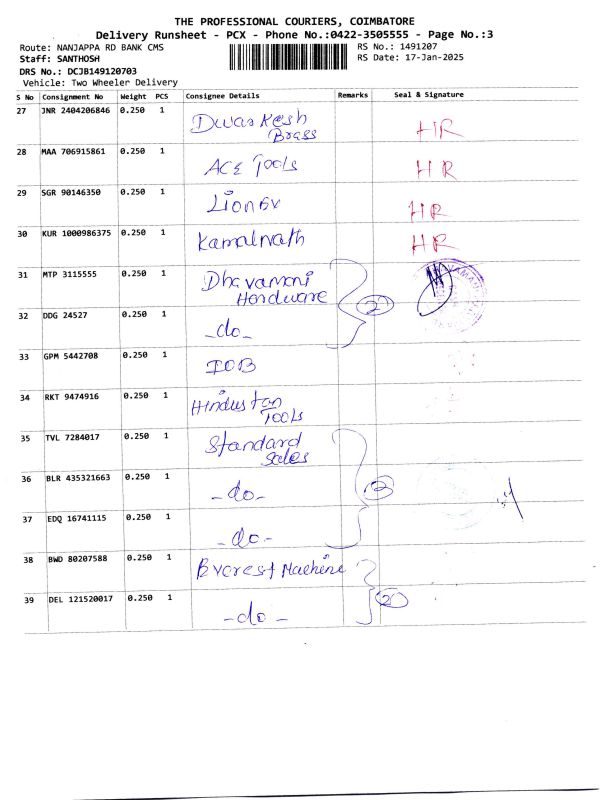 THE PROFESSIONAL COURIERS, COIMBATORE
Delivery Runsheet - PCX - Phone No.:0422-3505555 - Page No.:3
Route: NANJAPPA RD BANK CMS RS No.: 1491207
Staff: SANTHOSH RS Date: 17-Jan-2025
DRS No.: DCJB149120703
Vehicle: Two Wheeler Delivery
S No Consignment No Weight PCS Consignee Details Remarks Seal & Signature
27 JNR 2404206846 0.250 1 Dwarkesh
Brass HR
28 MAA 706915861 0.250 1 ACE Tools HR
29 SGR 90146350 0.250 1 HR
30 KUR 1000986375 0.250 1 Kamalnath HR
31 MTP 3115555 0.250 1 Dhavamani
Hardware 2
32 DDG 24527 0.250 1 -do-
33 GPM 5442708 0.250 1 IOB
34 RKT 9474916 0.250 1 Hindustan
Tools
35 TVL 7284017 0.250 1 Standard
Sales
36 BLR 435321663 0.250 1 -do- 3
37 EDQ 16741115 0.250 1 -do-
38 BWD 80207588 0.250 1 Everest Machine
39 DEL 121520017 0.250 1 -do- 2